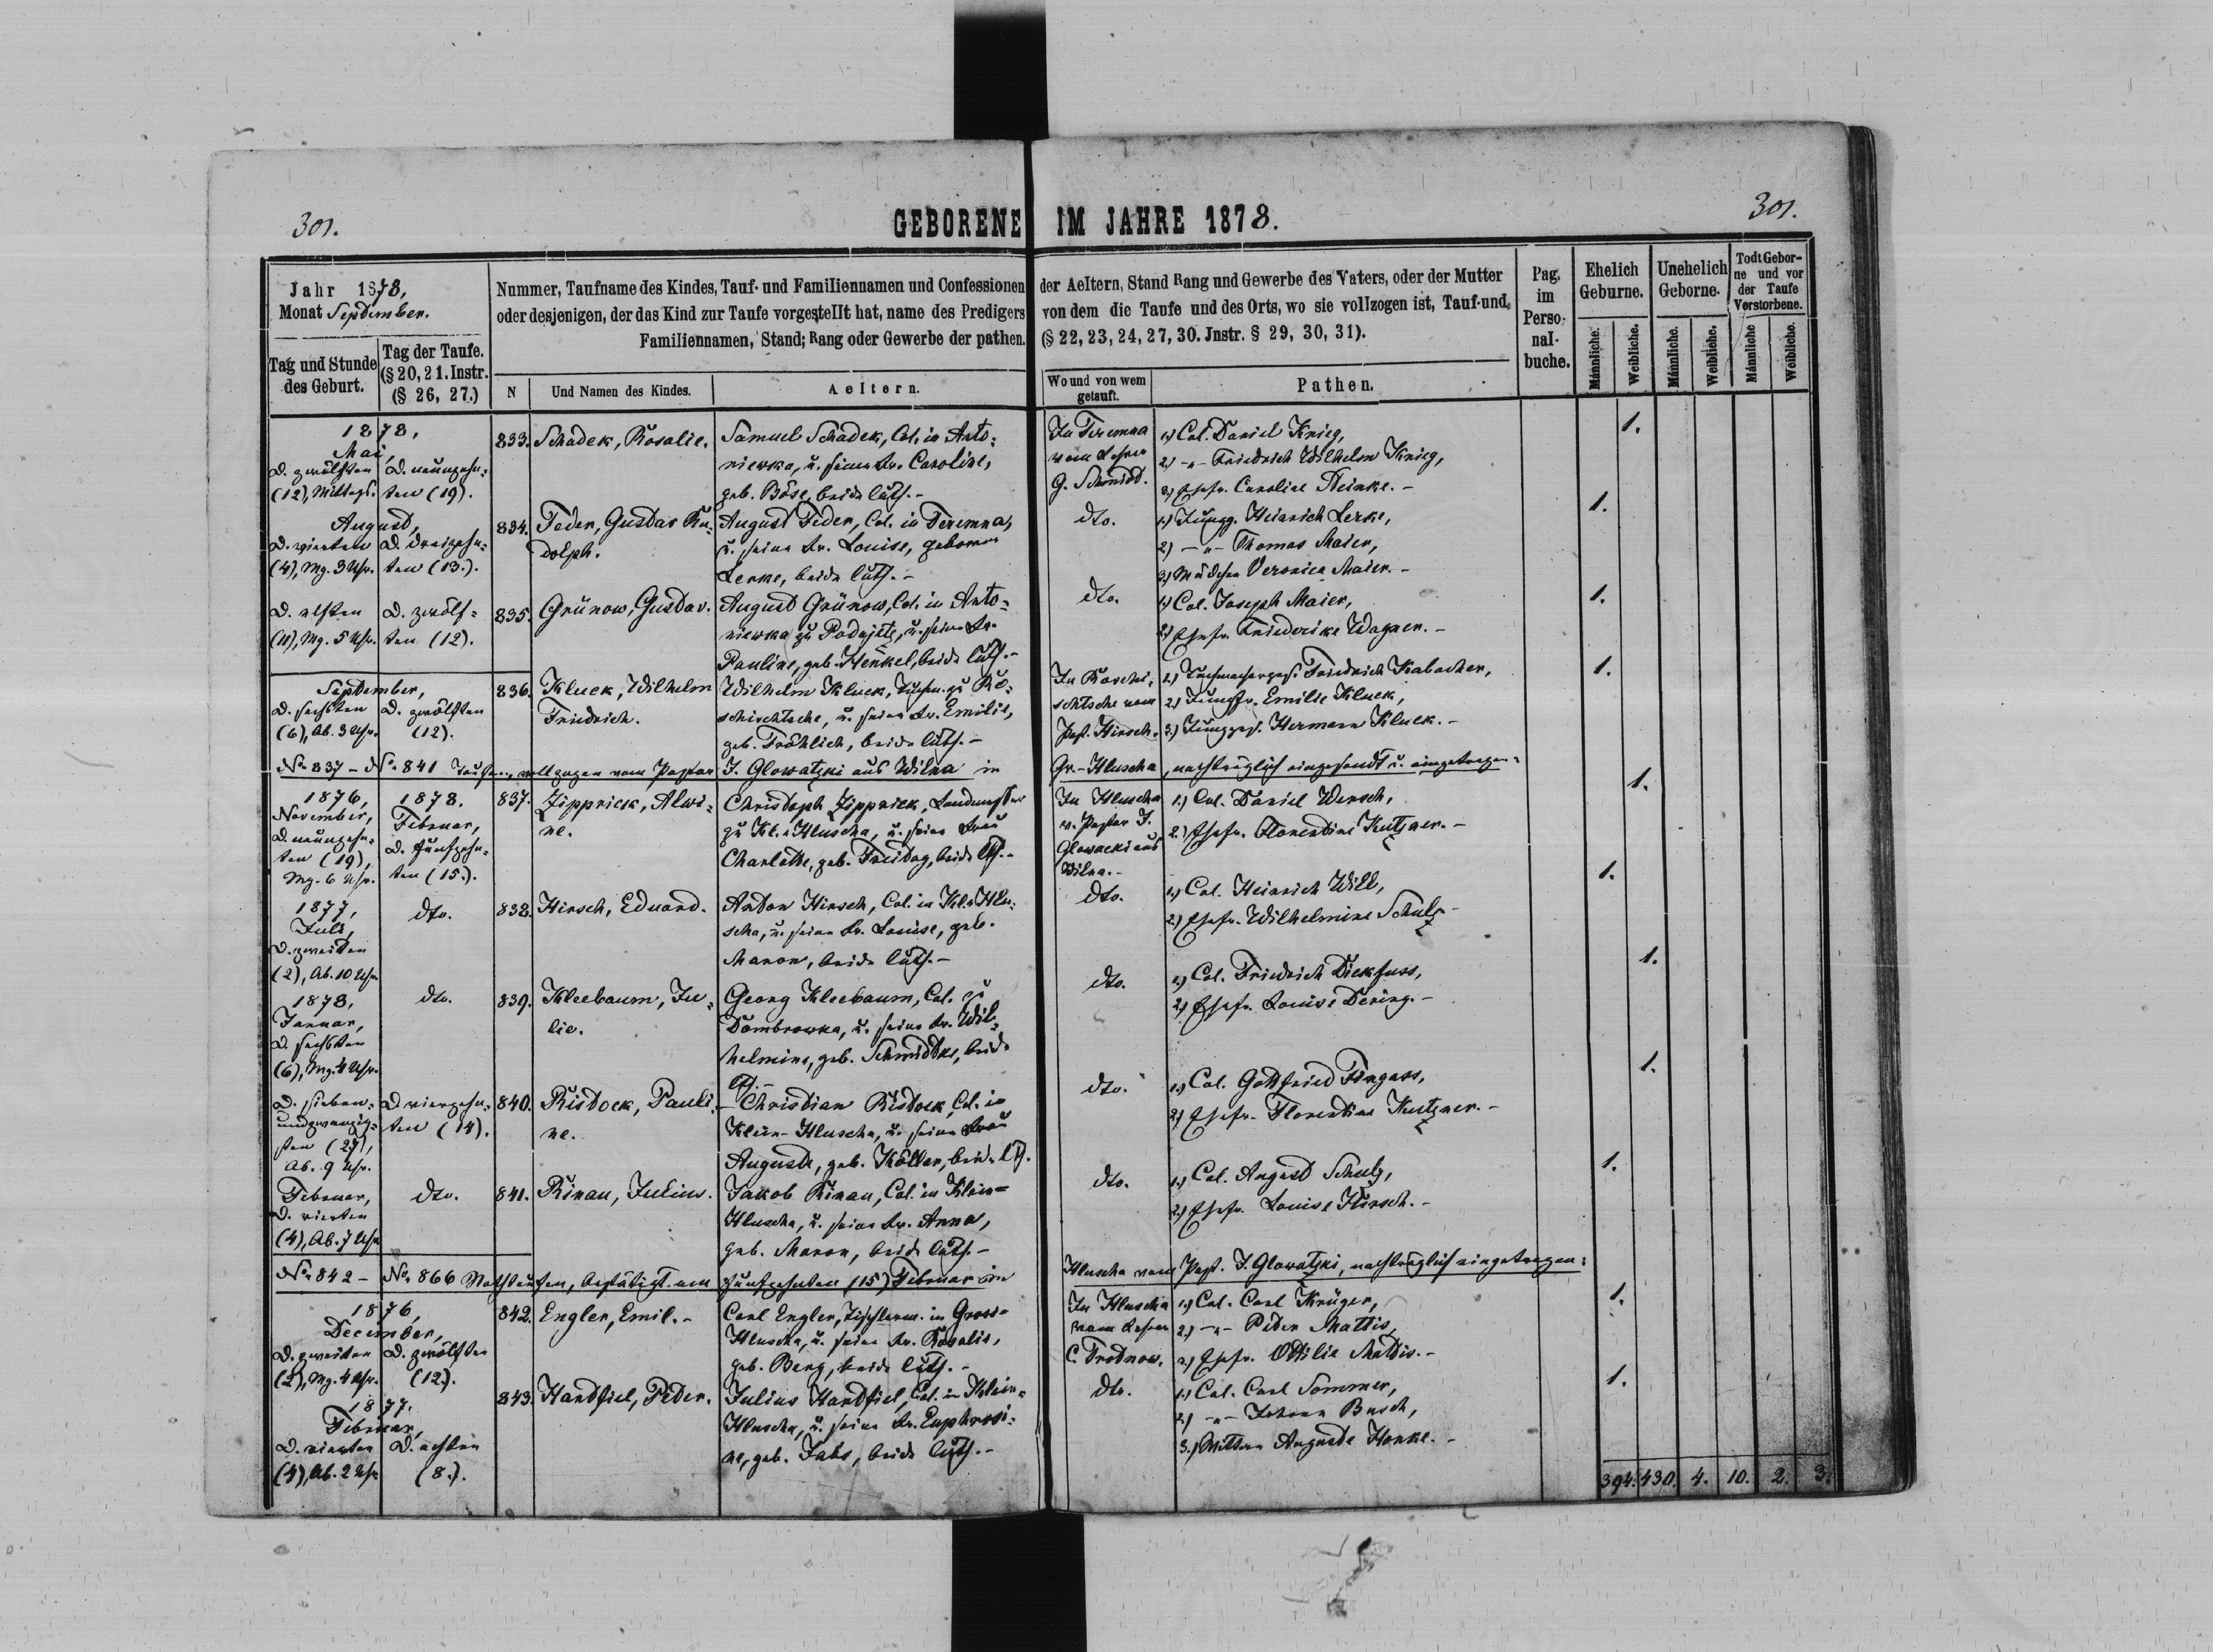 301.
GEBORENE IM JAHRE 1878.
301.
Jahr 1878,
Monat September.
Tag und Stunde
des Geburt.
Tag der Taufe.
(§ 20, 21. Instr.
(§ 26, 27.)
Nummer, Taufname des Kindes, Tauf- und Familiennamen und Confessionen der Aeltern, Stand Rang und Gewerbe des Vaters, oder der Mutter
oder desjenigen, der das Kind zur Taufe vorgestellt hat, name des Predigers von dem die Taufe und des Orts, wo sie vollzogen ist, Tauf-und
Familiennamen, Stand; Rang oder Gewerbe der pathen. (§ 22, 23, 24, 27, 30. Jnstr. § 29, 30, 31).
N
Und Namen des Kindes.
Aeltern.
Wo und von wem
getauft.
Pathen.
Pag.
im
Perso-
nal-
buche.
Ehelich
Geburne.
Unehelich
Geborne.
Todt Gebor-
ne und vor
der Taufe
Verstorbene.
Männliche.
Weibliche.
Männliche.
Weibliche.
Männliche
Weibliche.
1878,
Mai,
D. zwölften
(12), Mittags.
D. neunzehn-
ten (19).
833.
Schadek, Rosalie.
Samuel Schadek, Col. in Anto-
niewka, u. seine Fr. Caroline,
geb. Böse, beide luth.-
In Teremna
vom Lehrer
G. Schmidt.
1.) Col. Daniel Knieg,
2.) -"- Friedrich Wilhelm Knieg,
3.) Ehefr. Caroline Steinke.-
1.
August,
D. vierten
(4), Mg. 3 Uhr.
D. dreizehn-
ten (13.).
834.
Feder, Gustav Ru-
dolph.
August Feder, Col. in Teremna,
u. seine Fr. Louise, geborene
Lerke, beide luth.-
dto.
1.) Jungg. Heinrich Lerke,
2) -"- Thomas Maier,
3) Mädchen Veronica Maier.-
1.
D. elften
(11), Mg. 5 Uhr.
D. zwölf-
ten (12).
835.
Grünow, Gustav.
August Grünow, Col. in Anto-
niewka zu Podajetz, u. seine Fr.
Pauline, geb. Henkel, beide luth.-
dto.
1.) Col. Joseph Maier,
2.) Ehefr. Friederike Wagner.-
1.
September,
D. sechsten
(6), Ab. 3 Uhr.
D. zwölften
(12).
836.
Kluck, Wilhelm
Friedrich.
Wilhelm Kluck, Tuchm. zu Ro-
schischtsche, u. seine Fr. Emilie,
geb. Fröhlich, beide luth.-
In Roschi-
schtsche vom
Past. Hirsch.
1.) Tuchmachergeh. Friedrich Kabacher,
2.) Jungfr. Emilie Kluck,
3.) Junggs. Hermann Kluck.-
1.
No. 837 - No. 841 Taufen, vollzogen vom Pastor J. Glowatzki aus Wilna in Gr.-Hluscha, nachträglich eingesandt u. eingetragen:
1876,
November,
D. neunzehn-
ten (19),
Mg. 6 Uhr.
1878.
Februar,
D. fünfzehn-
ten (15.).
837.
Zipprick, Alwi-
ne.
Christoph Zipprick,
zu Kl.-Hluscha, u. seine Frau
Charlotte, geb. Freitag, beide lth.-
In Hluscha
v. Pastor J.
Glowacki aus
Wilna.-
1.) Col. Daniel Wersch,
2.) Ehefr. Florentine Kutzner.-
1.
1877,
Juli,
D. zweiten
(2), Ab. 10 Uhr.
dto.
838.
Hirsch, Eduard.
Anton Hirsch, Col. in Kl. Hlu-
scha, u. seine Fr. Louise, geb.
Maron, beide luth.-
dto.
1.) Col. Heinrich Will,
2.) Ehefr. Wilhelmine Schulz.-
1.
1878,
Januar,
D. sechsten
(6), Mg. 4 Uhr.
dto.
839.
Kleebaum, Ju-
lie.
Georg Kleebaum, Col. zu
Dombrowka, u. seine Fr. Wil-
helmine, geb. Schmidtke, beide
lth.-
dto.
1.) Col. Friedrich Dickfuss,
2.) Ehefr. Louise Dering.-
1.
D. sieben-
undzwanzig-
sten (27),
Ab. 9 Uhr.
D. vierzehn-
ten (14).
840.
Ristock, Pauli-
ne.
Christian Ristock, Col. in
Klein-Hluscha, u. seine Frau
Auguste, geb. Köller, beide lth.
dto.
1.) Col. Gottfried Fingass,
2.) Ehefr. Florentine Kutzner.-
1.
Februar,
D. vierten
(4), Ab. 7 Uhr
dto.
841.
Rinau, Julius.
Jakob Rinau, Col. in Klein-
Hluscha, u. seine Fr. Anna,
geb. Maron, beide luth.-
dto.
1.) Col. August Schulz,
2.) Ehefr. Louise Hirsch.-
1.
No. 842 - No. 866 Nothtaufen, bestätigt am fünfzehnten (15) Februar in Hluscha vom Past. J. Glowatzki, nachträglich eingetragen:
1876,
December,
D. zweiten
(2), Mg. 4 Uhr.
D. zwölften
(12.).
842.
Engler, Emil.-
Carl Engler, Tischlerm. in Gross-
Hluscha, u. seine Fr. Rosalie,
geb. Berg, beide luth.-
In Hluscha
vom Lehrer
C. Trotnow.
1.) Col. Carl Krüger,
2.) -"- Peter Mattis,
3.) Ehefr. Ottilie Mattis.-
1.
1877.
Februar,
D. vierten
(4), Ab. 2 Uhr
D. achten
(8.).
843.
Handfiel, Peter.
Julius Handfiel, Col. in Klein-
Hluscha, u. seine Fr. Euphrosi-
ne, geb. Jabs, beide luth.-
dto.
1.) Col. Carl Sommer,
2.) -"- Johann Busch,
3.) Auguste Henke.-
1.
394. 430. 4. 10. 2. 3.